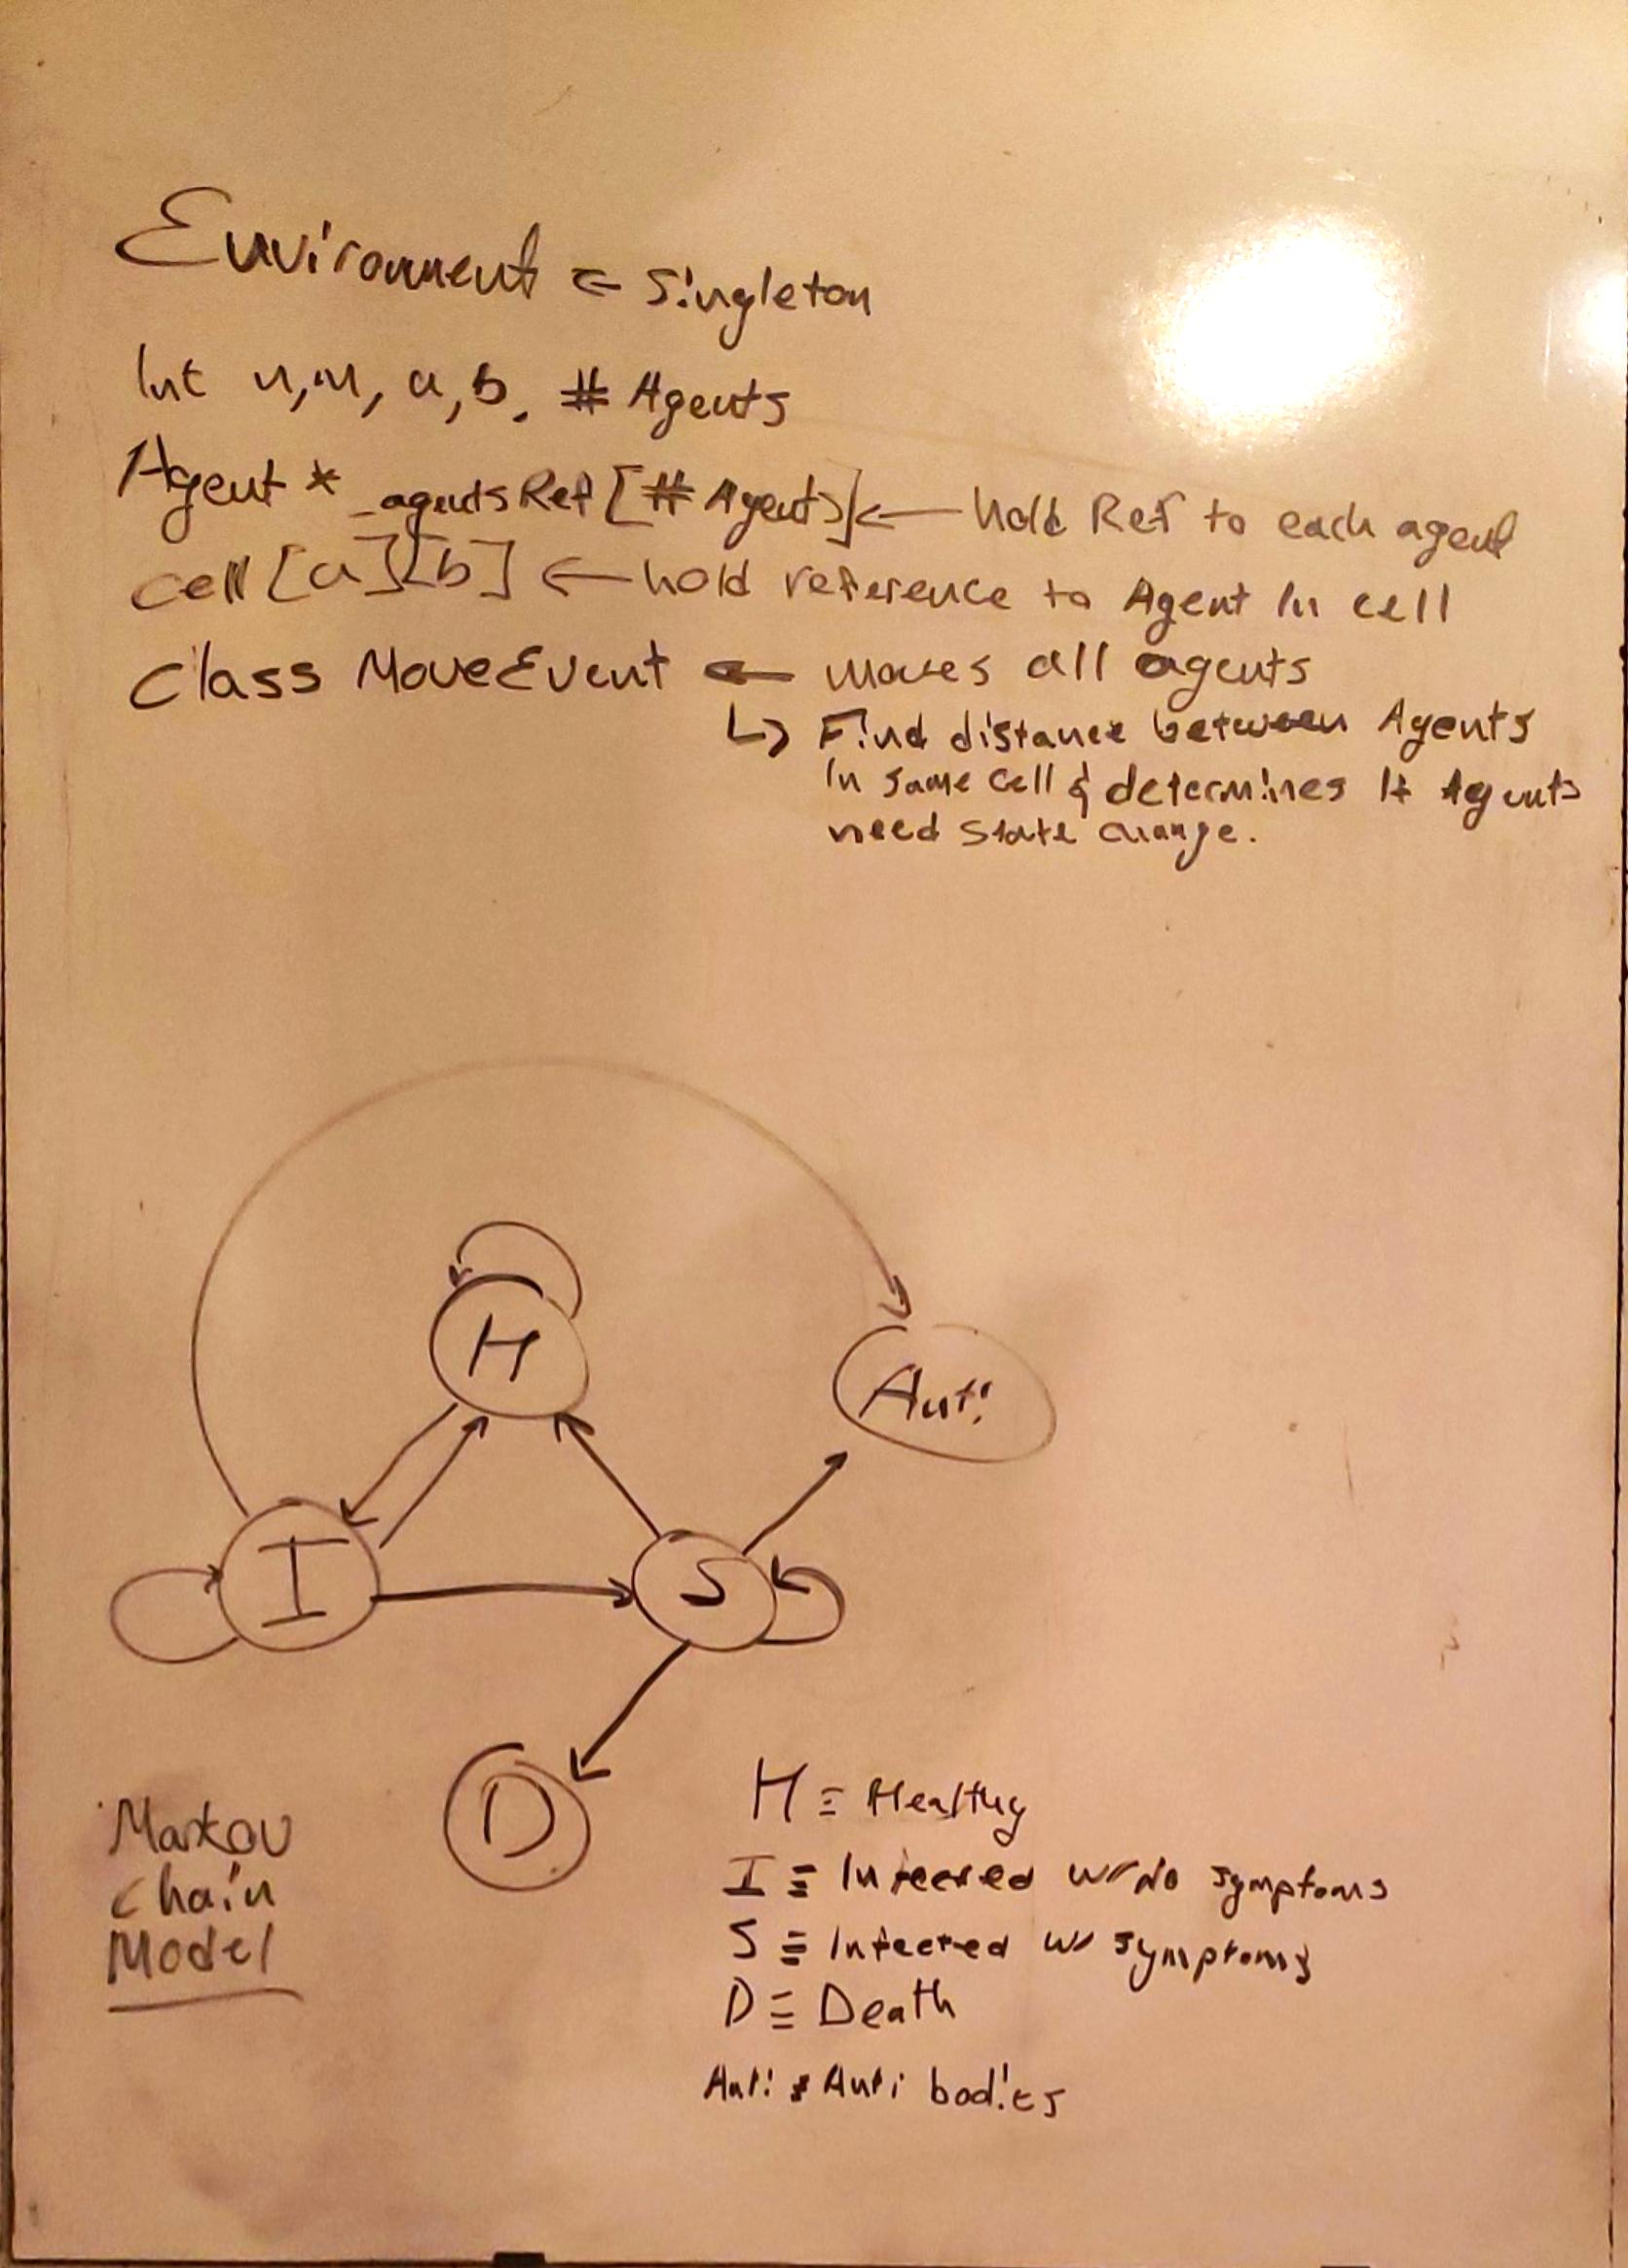 Environment ← Singleton
Int n,m, a,b, # Agents
Agent * _agentsRef [# Agents] ← hold Ref to each agent
cell [a][b] ← hold reference to Agent In cell
Class MoveEvent ← moves all agents
↳ Find distance between Agents
In same cell & determines If Agents
need state change.
H
Anti
I
S
D
Markov
Chain
Model
H ≡ Healthy
I ≡ Infected w/ No symptoms
S ≡ Infected w/ symptoms
D ≡ Death
Anti ≡ Anti bodies